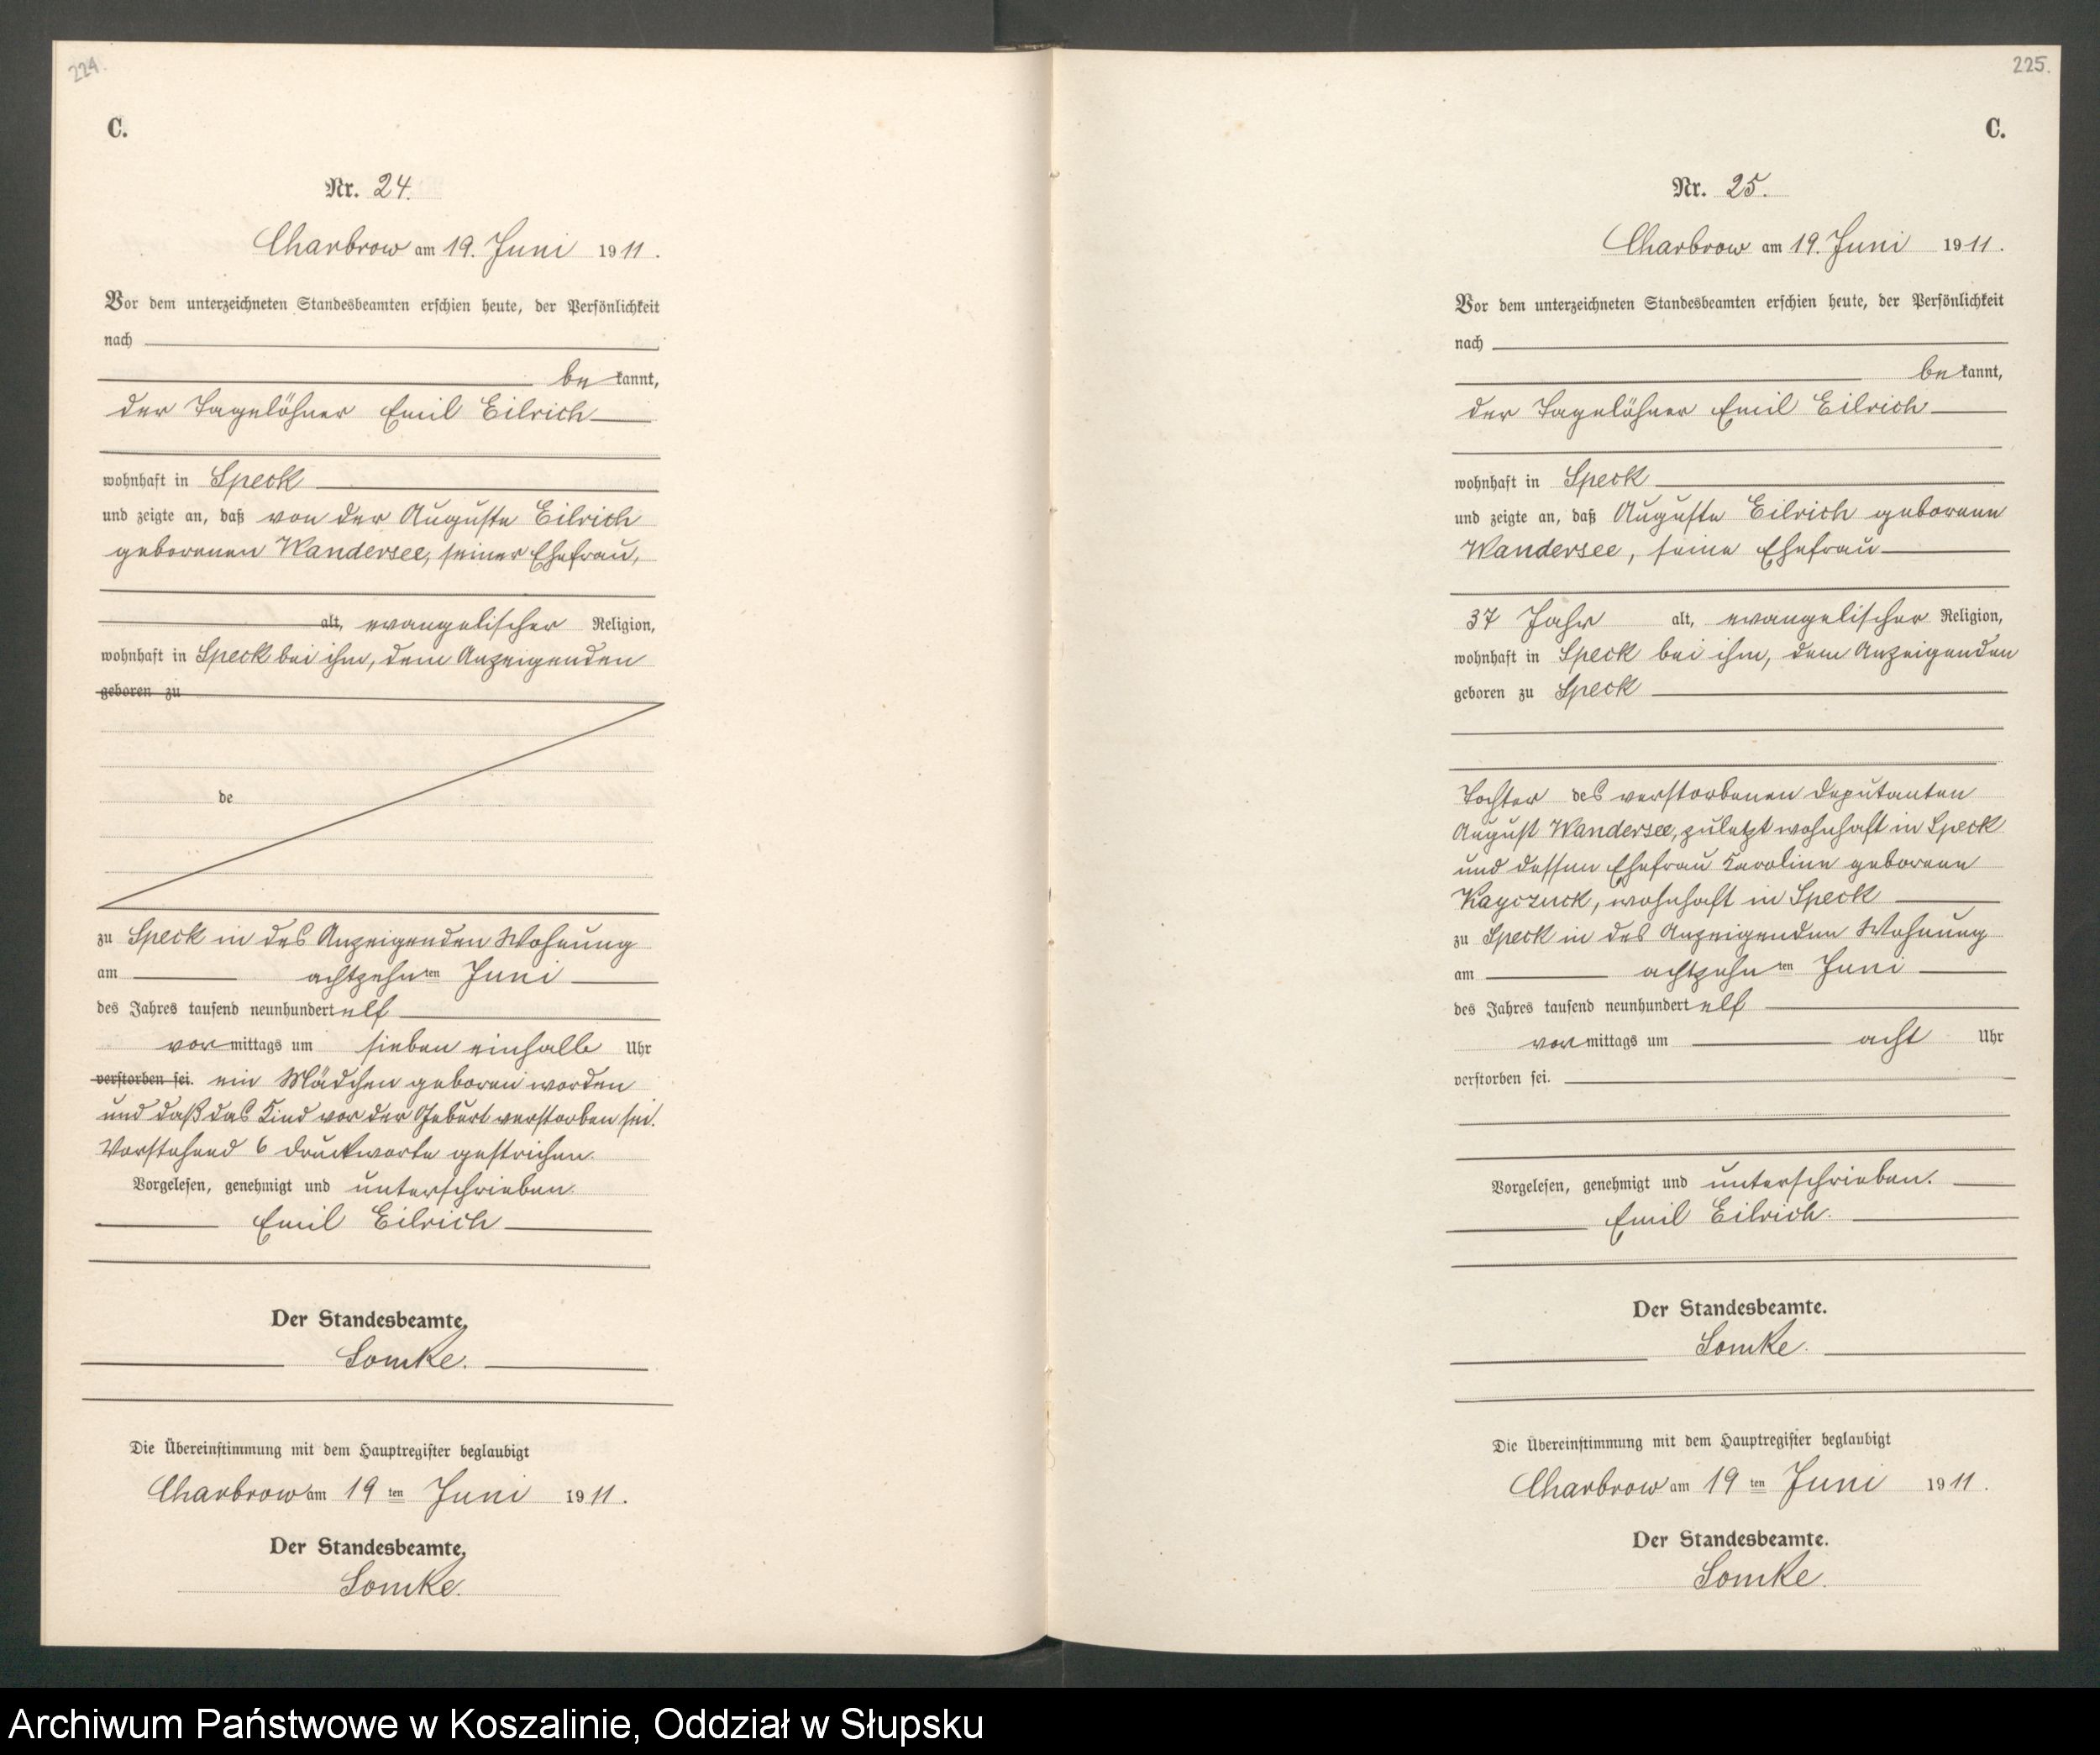 224.
C.
Nr. 24.
Charbrow am 19. Juni 1911.
Vor dem unterzeichneten Standesbeamten erschien heute, der Persönlichkeit
nach
be kannt,
der Tagelöhner Emil Eilrich
wohnhaft in Speck
und zeigte an, daß von der Auguste Eilrich
geborenen Wandersee, seiner Ehefrau,
alt, evangelischer Religion,
wohnhaft in Speck bei ihm, dem Anzeigenden
geboren zu
de
zu Speck in des Anzeigenden Wohnung
am achtzehnten Juni
des Jahres tausend neunhundert elf
vormittags um sieben einhalb Uhr
verstorben sei. ein Mädchen geboren worden
und daß das Kind vor der Geburt verstorben sei.
Vorstehend 6 Druckworte gestrichen.
Vorgelesen, genehmigt und unterschrieben.
Emil Eilrich
Der Standesbeamte,
Lomke.
Die Übereinstimmung mit dem Hauptregister beglaubigt
Charbrow am 19 ten Juni 1911.
Der Standesbeamte,
Lomke.
225.
C.
Nr. 25.
Charbrow am 19. Juni 1911.
Vor dem unterzeichneten Standesbeamten erschien heute, der Persönlichkeit
nach
be kannt,
der Tagelöhner Emil Eilrich
wohnhaft in Speck
und zeigte an, daß Auguste Eilrich geborene
Wandersee, seine Ehefrau
37 Jahr alt, evangelischer Religion,
wohnhaft in Speck bei ihm, dem Anzeigenden
geboren zu Speck
Tochter des verstorbenen Deputanten
August Wandersee, zuletzt wohnhaft in Speck
und dessen Ehefrau Karoline geborene
Kayczuck, wohnhaft in Speck
zu Speck in des Anzeigenden Wohnung
am achtzehnten Juni
des Jahres tausend neunhundert elf
vormittags um acht Uhr
verstorben sei.
Vorgelesen, genehmigt und unterschrieben.
Emil Eilrich.
Der Standesbeamte.
Lomke.
Die Übereinstimmung mit dem Hauptregister beglaubigt
Charbrow am 19 ten Juni 1911.
Der Standesbeamte.
Lomke.
Archiwum Państwowe w Koszalinie, Oddział w Słupsku